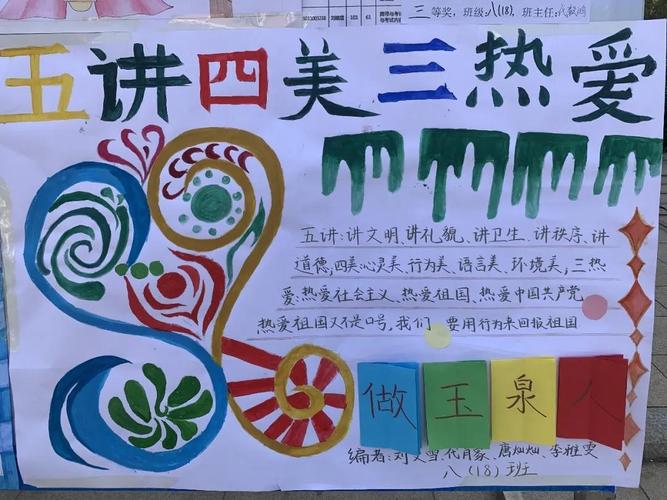 三等奖, 班级:八(18), 班主任:
五讲四美三热爱
五讲:讲文明、讲礼貌、讲卫生、讲秩序、讲
道德,四美:心灵美、行为美、语言美、环境美,三热
爱:热爱社会主义、热爱祖国、热爱中国共产党
热爱祖国不是口号,我们 要用行为来回报祖国
做玉泉人
编者:刘 雪、代肖家、唐灿灿、李雅雯
八(18)班